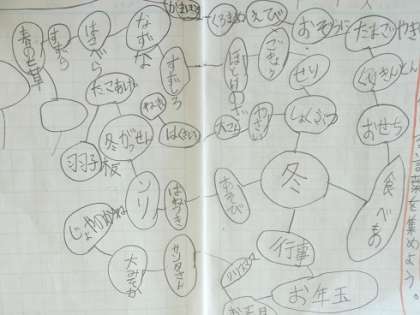 言葉を集めよう。
冬
食べもの
おせち
くりきんとん
たまごやき
おぞうに
えび
くろまめ
かまぼこ
しょくぶつ
せり
ごぎょう
ほとけのざ
すずしろ
なずな
はこべら
すずな
春の七草
やさい
大こん
はくさい
ねぎ
あそび
はねつき
羽子板
たこあげ
冬がっせん
ソリ
行事
お年玉
お正月
クリスマス
サンタさん
大みそか
じょやのかね